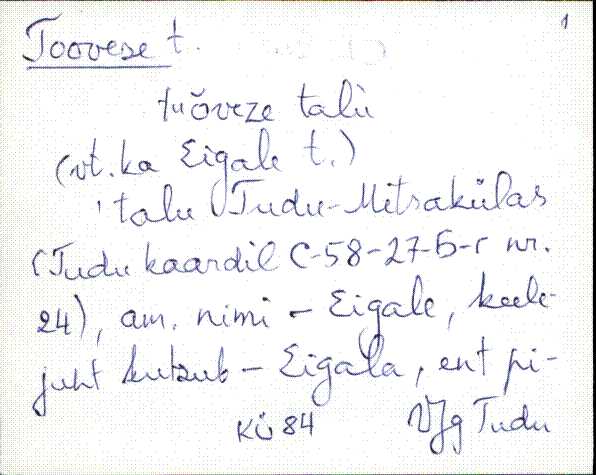 1
Toovese t.
tuŏveze talù
(vt. ka Eigale t.)
talu Tudu-Metsakülas
(Tudu kaardil C-58-27-Б-г nr.
24), am. nimi - Eigale, keele-
juht kutsub - Eigala, ent pi-
KÜ 84 VJg Tudu